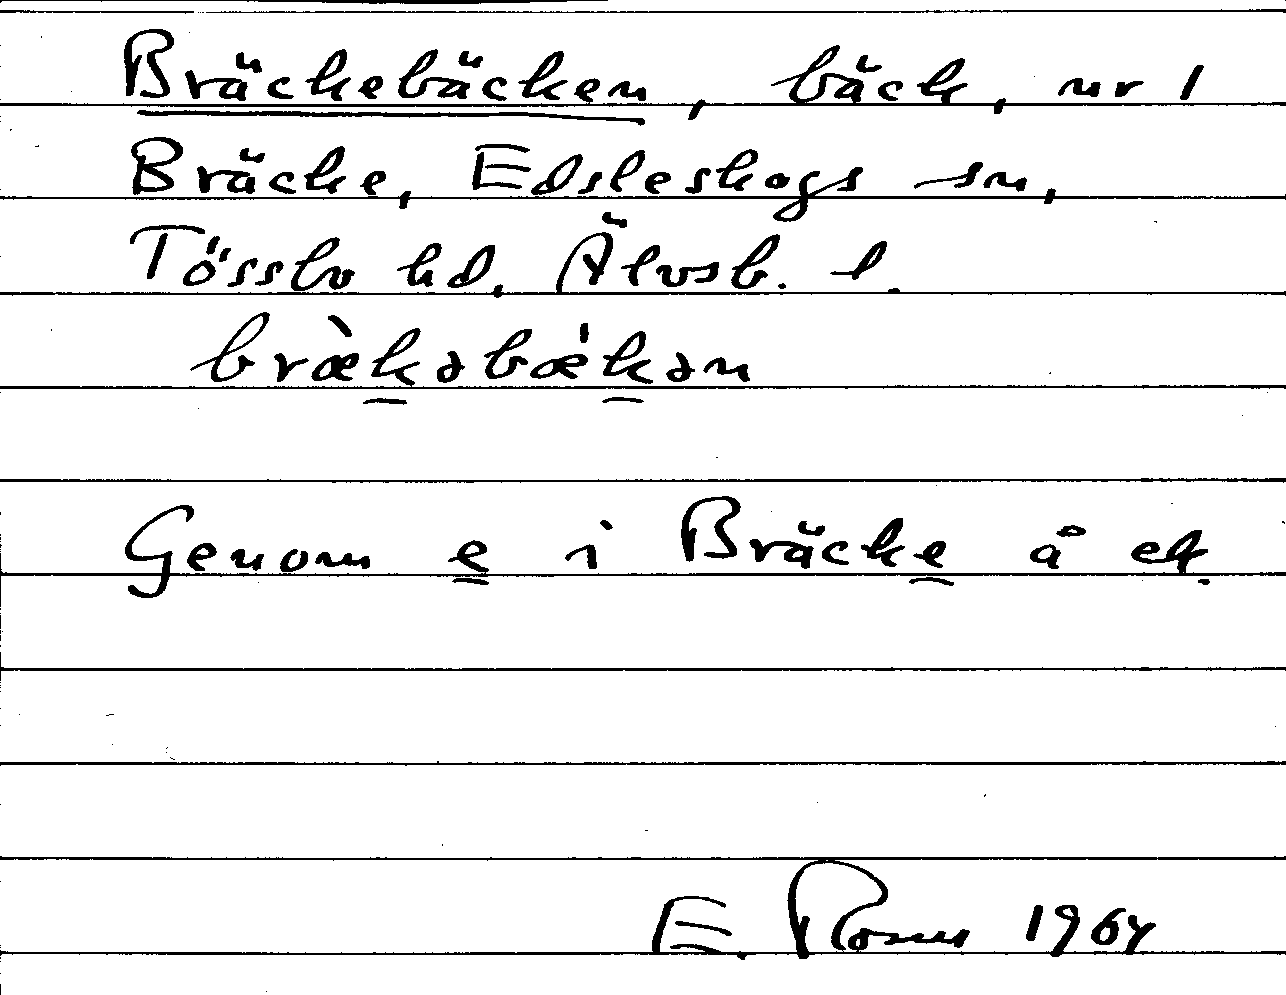 Bräckebäcken, bäck, nr 1
Bräcke, Edsleskogs sn,
Tössbo hd. Älvsb. l.
bræ̀k̠əbæ̍k̠ən
Genom e̲ i Bräcke̲ å ek.
E. 1964